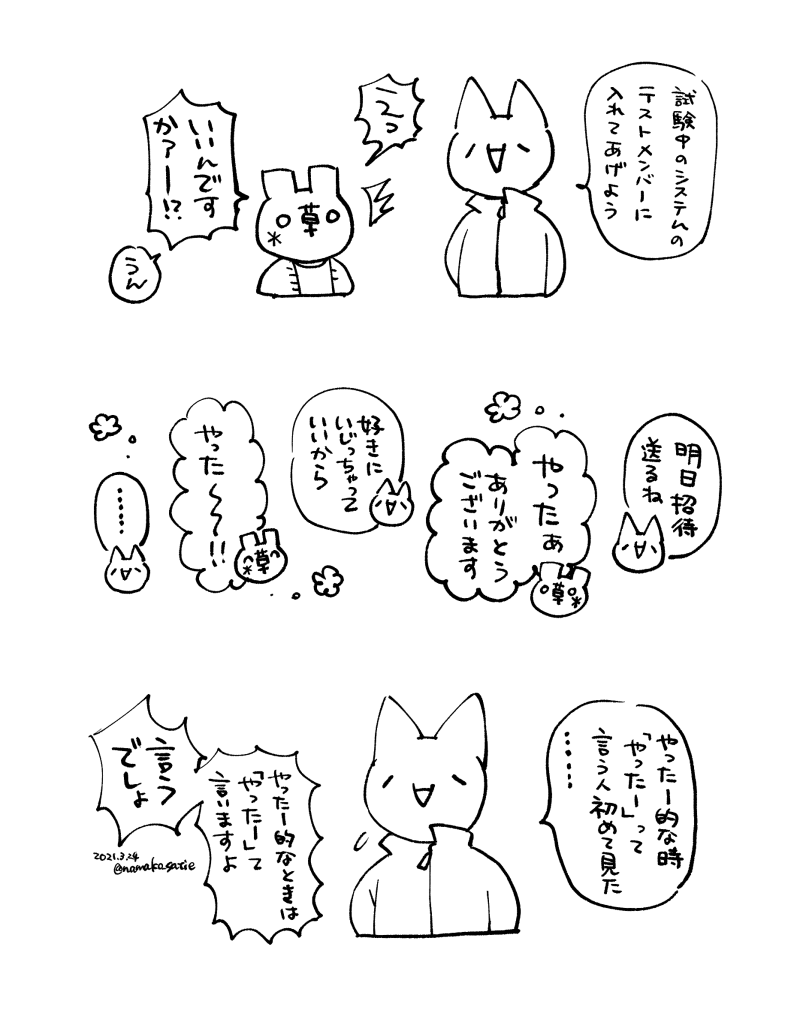 試験中のシステムの
テストメンバーに
入れてあげよう
えっ
草
いいんです
かァー!?
うん
明日招待
送るね
やったぁ
ありがとう
ございます
草
好きに
いじっちゃって
いいから
やった〜〜!!
草
……
やったー的な時
「やったー」って
言う人初めて見た
……
やったー的なときは
「やったー」って
言いますよ
言う
でしょ
2021.3.24
@namakasatie